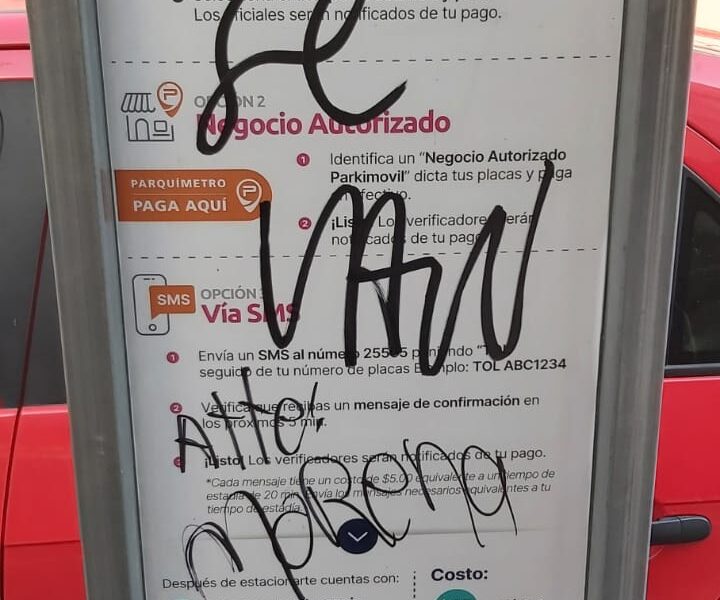 Los oficiales serán notificados de tu pago.
SE
OPCIÓN 2
Negocio Autorizado
1 Identifica un "Negocio Autorizado
Parkimovil" dicta tus placas y paga
en efectivo.
PARQUÍMETRO
PAGA AQUÍ
P
2 ¡Listo! Los verificadores serán
notificados de tu pago.
VAN
SMS
OPCIÓN 3
Vía SMS
1 Envía un SMS al número 255 poniendo "TOL
seguido de tu número de placas Ejemplo: TOL ABC1234
2 Verifica que recibas un mensaje de confirmación en
los próximos 5 min.
Atte:
¡Listo! Los verificadores serán notificados de tu pago.
*Cada mensaje tiene un costo de $5.00 equivalente a un tiempo de
estadía de 20 min. Envía los mensajes necesarios equivalentes a tu
tiempo de estadía.
MoRena
Después de estacionarte cuentas con:
Costo: